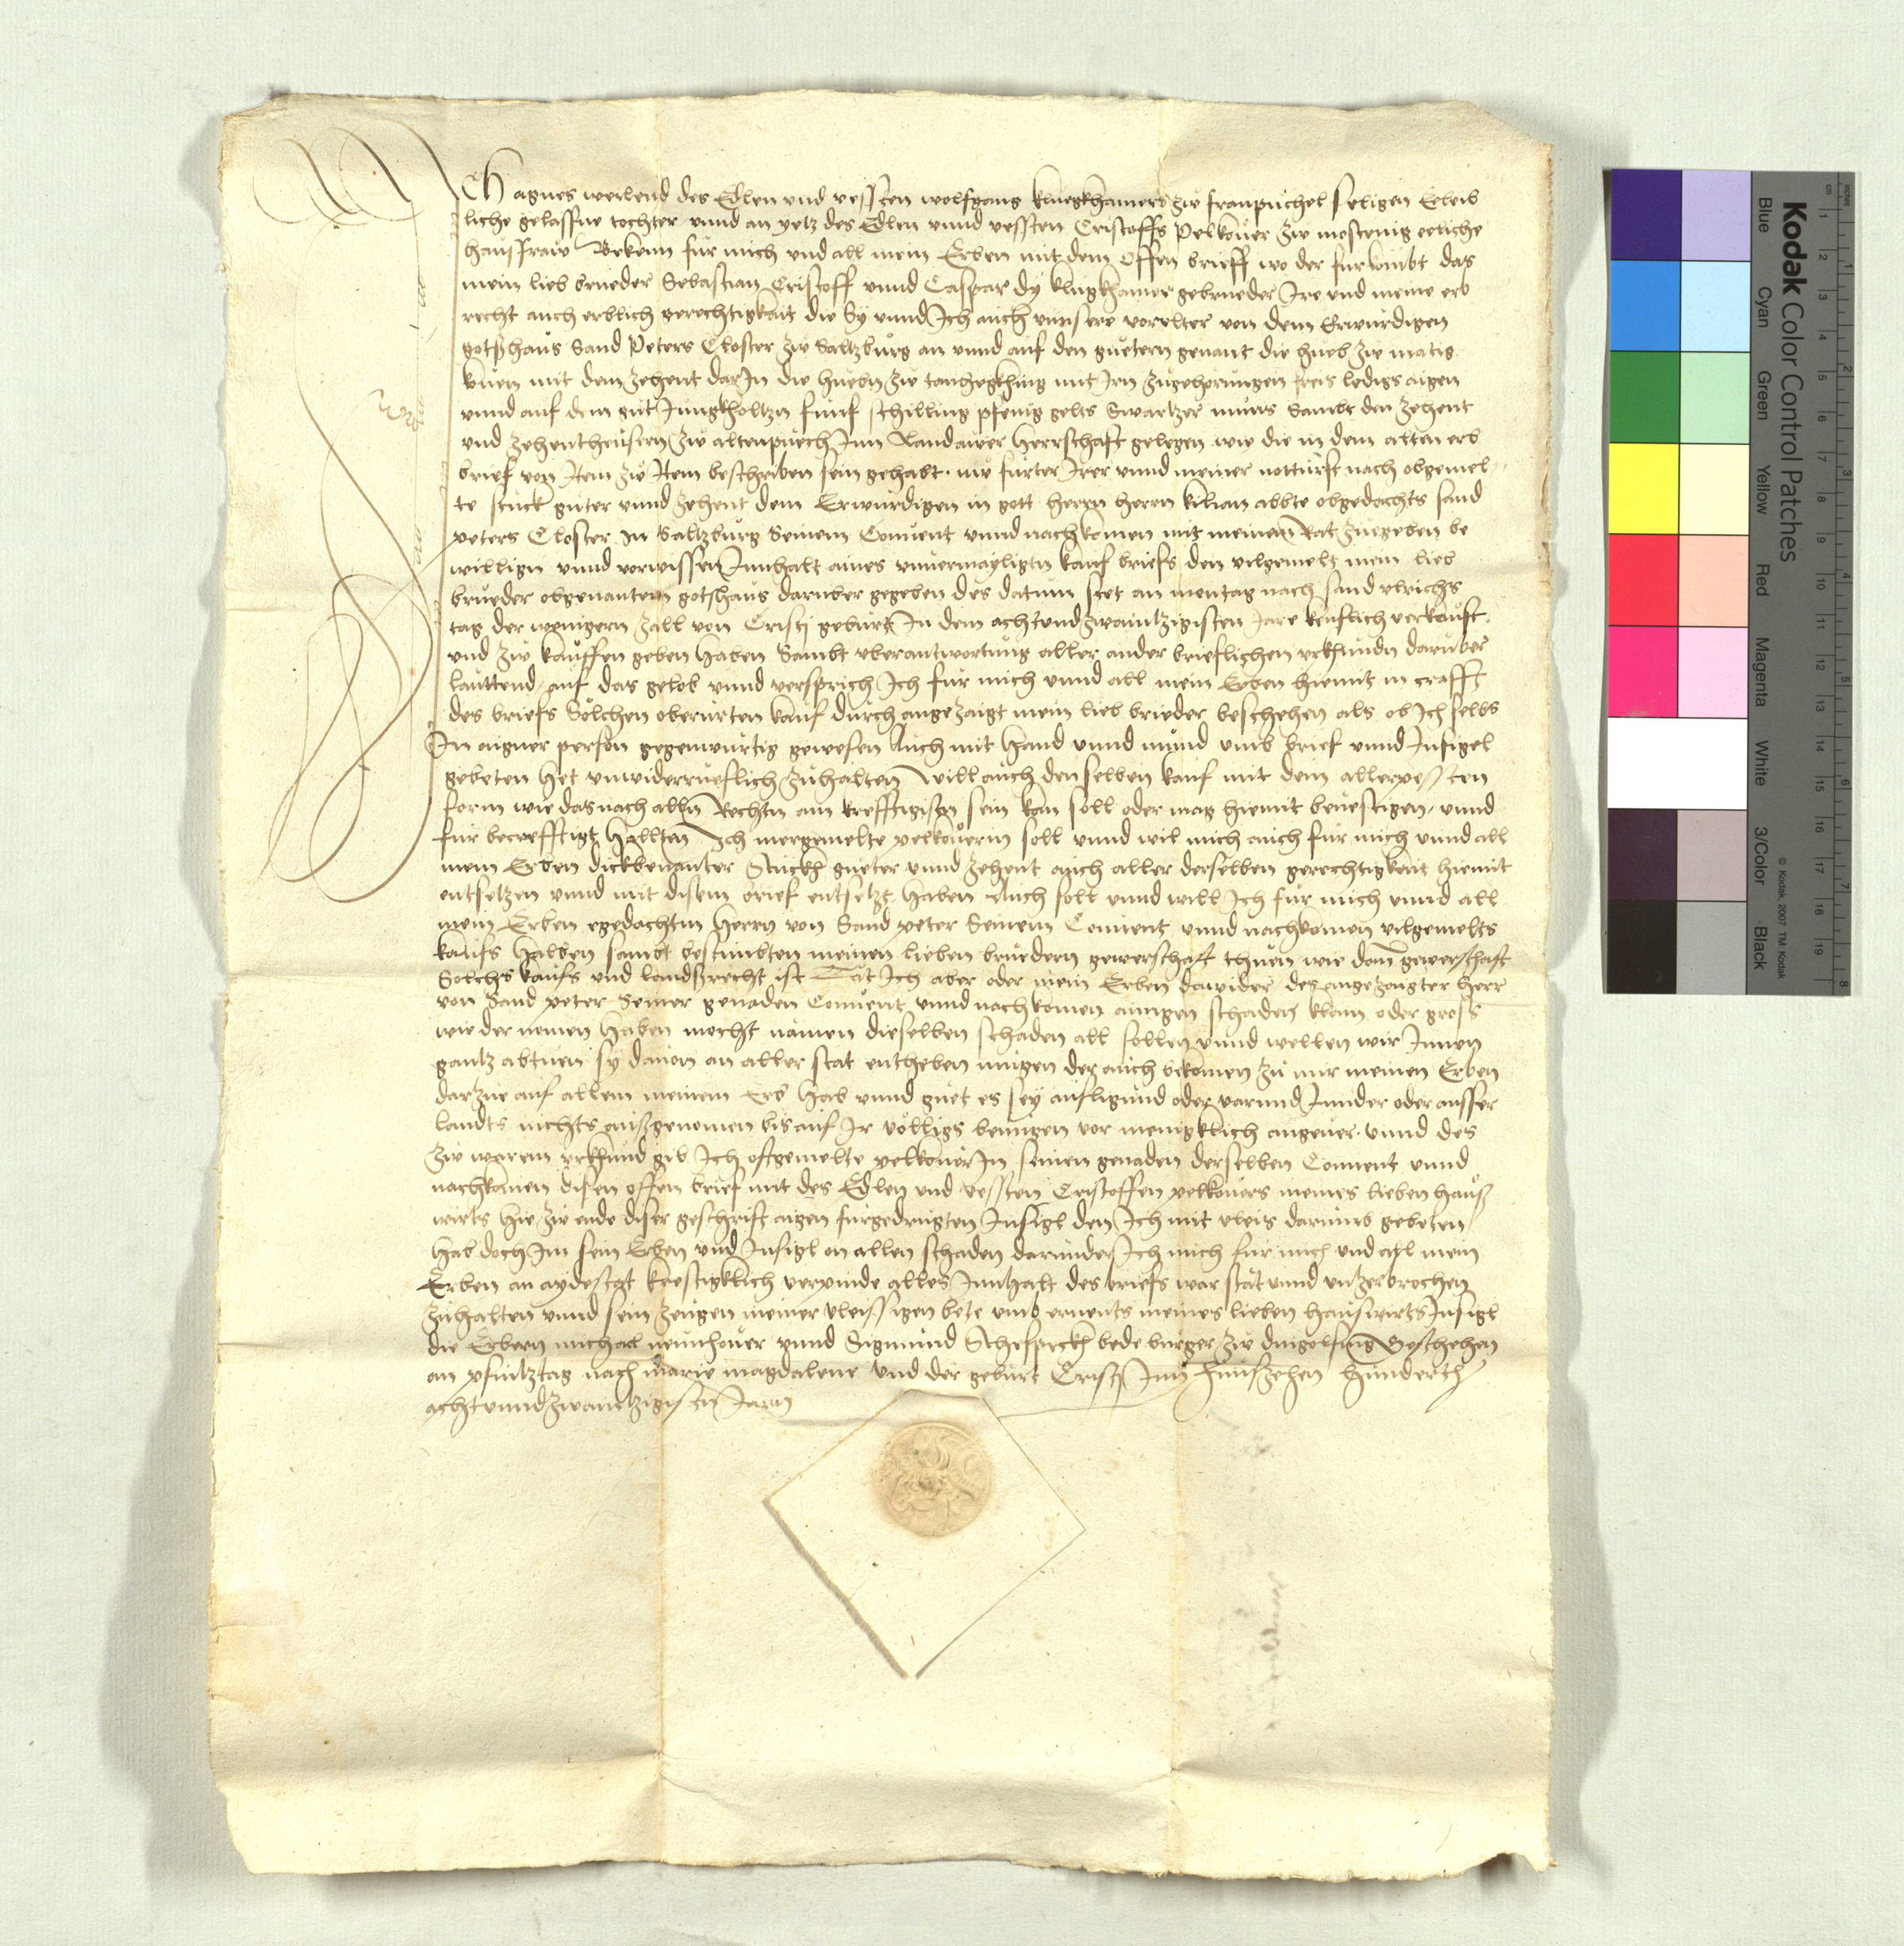 Ich agnes weilend des Edlen und vessten wolfgang klugkhamers zw franpuchel seligen Eeleib
liche gelassne tochter unnd an yetz des Edlen unnd vessten Cristoffs Pelkover zw mostenig eeliche
hausfraw Bekenn fur mich und all mein Erben mit dem offen brieff wo der furkombt das
mein lieb brueder Sebastian Cristoff unnd Caspar dy klugkhamer gebrueder Ire und meine erb
recht auch erblich gerechtigkait die Sy unnd Ich auch unnsere vorelter von dem Erwurdigen
gotzhaus Sand Peters Closter zw Saltzburg an unnd auf den guetern genant die hueb zw matig
kuen mit dem zehent darJn die huebn zw mit Irn zugehorungen freis ledigs aigen
unnd auf dem gut Jungkholtzn funf schilling pfenig gelts Swartzer muns Sambt den zehent
und zehentheusern zw altenpuech Inn Landawer herrschaft gelegen wie die in dem alten erb
brief von Item zw Item beschriben sein gehabt. nw furter Irer unnd meiner notturft nach obgemel
te stuck guter unnd zehent dem Erwurdigen in gott herrn herrn kilian abbte obgedachts sand
peters Closter in Saltzburg Seinem Convent unnd nachkomen mit meinem Rat zuegeben be
willign unnd vorwissen Innhalt aines unvermayligtn kauf briefs den vilgemelt mein lieb
brueder obgenantem gotshaus daruber gegeben des datum stet an mentag nach sand ulrichs
tag der wenigern zall von Cristj geburt In dem achtundzwaintzigisten Jare keuflich verkauft.
und zw kauffen geben haben Sambt uberantwortung aller ander brieflichen urkhundn daruber
lauttend auf das gelob unnd versprich Ich fur mich unnd all mein Erben hiemit in crafft
des briefs Solchen oberurten kauf durch angezaigt mein lieb brueder beschehen als ob Ich selbs
In aigner person gegenwurtig gewesen Auch mit hand unnd mund umb brief unnd Insigel
gebeten het unwiderrueflich zuhalten will auch denselben kauf mit dem allerpessten
form wie das nach alln Rechtn am krefftigistn sein kan soll oder mag hiemit bevestigen, unnd
fur becrefftigt hallten Ich mergemelte pelkoverin soll unnd wil mich auch fur mich unnd all
mein Erben dickbenanter Stuckh gueter unnd zehent auch aller derselben gerechtigkait hiemit
entsetzen unnd mit disem brief entsetzt haben Auch soll unnd will Ich fur mich unnd all
mein Erben egedachtm herrn von Sand peter Seinem Convent unnd nachkomen vilgemelts
kaufs halben sambt bestimbten meinen lieben bruedern gewerschaft thuen wie dann gewerschaft
Solchs kaufs und landsrecht ist Tät Ich aber oder mein Erben dawider des angezaigter herr
von Sand peter Seiner genaden Convent unnd nachkomen ainigen schaden klain oder gross
wie der namen haben mocht namen dieselben schaden all sollen unnd wellen wir Innen
gantz abtuen sy davon an aller stat entheben mugen der auch bekomen zu mir meinen Erben
darzue auf allem meinem Erb hab unnd guet es sey aufligund oder varund Inder oder ausser
landts nichts aussgenomen bis auf Ir völligs benugen vor menigklich ungever. Unnd des
zw warem urkhund gib Ich oftgemelte pelkoverin seinen genaden derselben Convent unnd
nachkomen disen offen brief mit des Edlen und vessten Cristoffen pelkovers meines lieben hauß
wirts hie zw ende diser geschrift aigen furgedrugten Insigl den Ich mit vleis darumb gebeten
hab doch Im sein Erben und Insigl on allen schaden darunder Ich mich fur mich und all mein
Erben an aydestat krefftigklich verpinde alles Innhalt des briefs war stät unnd untzerbrochen
zuhalten unnd sein zeugen meiner vleissigen bete umb ernents meines lieben hauswirts Insigl
die Erbern michael unnd Sigmund bede burger zw dingolfing Beschehen
an pfintztag nach Marie magdalene Und der geburt Cristj Im Funfzehen hunderth
achtunndzwaintzigisten Jarn